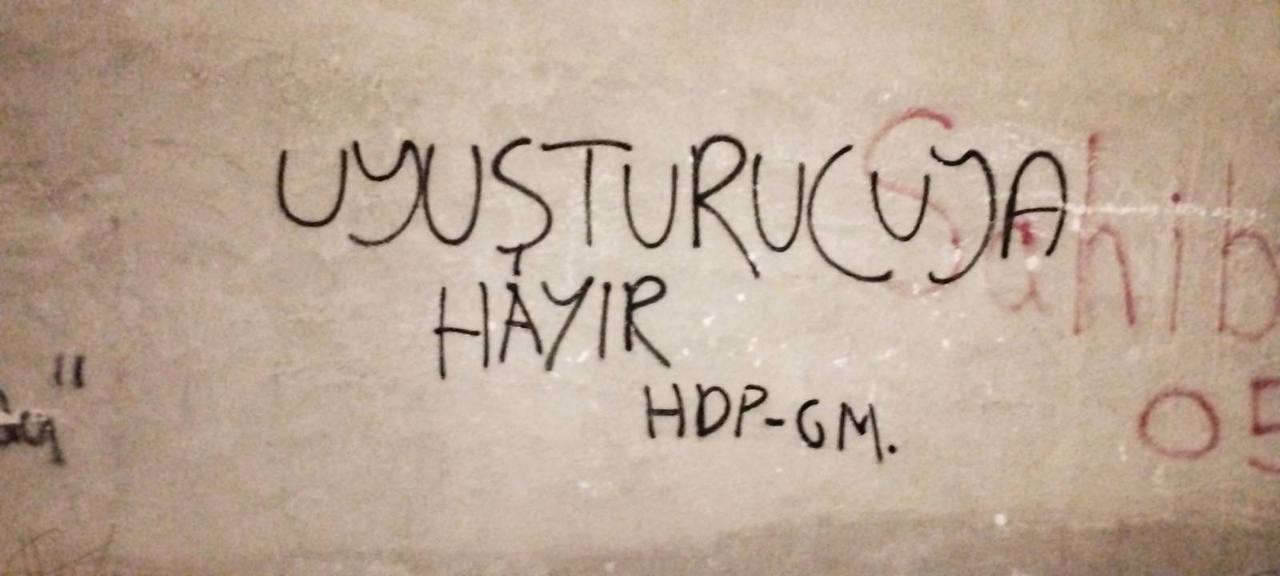 UYUŞTURU(U)YA
HAYIR
HDP-GM.
Sahib
05